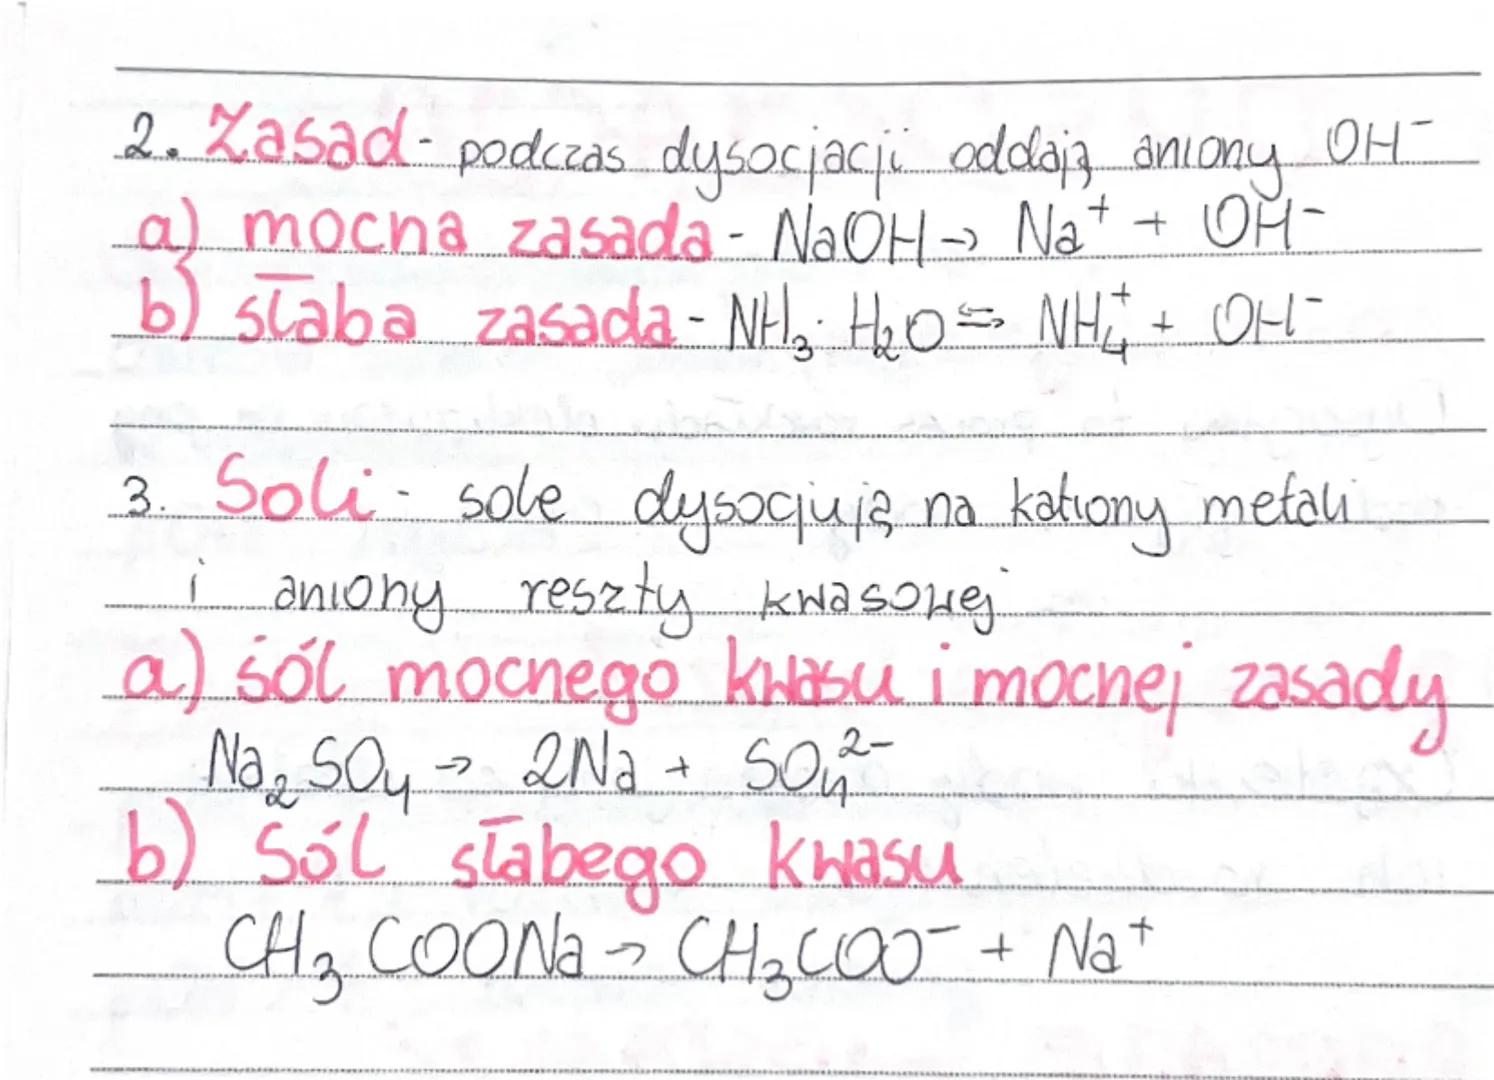 2. Zasad - podczas dysocjacji oddają aniony OH⁻
a) mocna zasada - NaOH → Na⁺ + OH⁻
b) słaba zasada - NH₃ · H₂O ⇌ NH₄⁺ + OH⁻
3. Soli - sole dysocjują na kationy metali
i aniony reszty kwasowej
a) sól mocnego kwasu i mocnej zasady
Na₂SO₄ → 2Na + SO₄²⁻
b) Sól słabego kwasu
CH₃COONa → CH₃COO⁻ + Na⁺